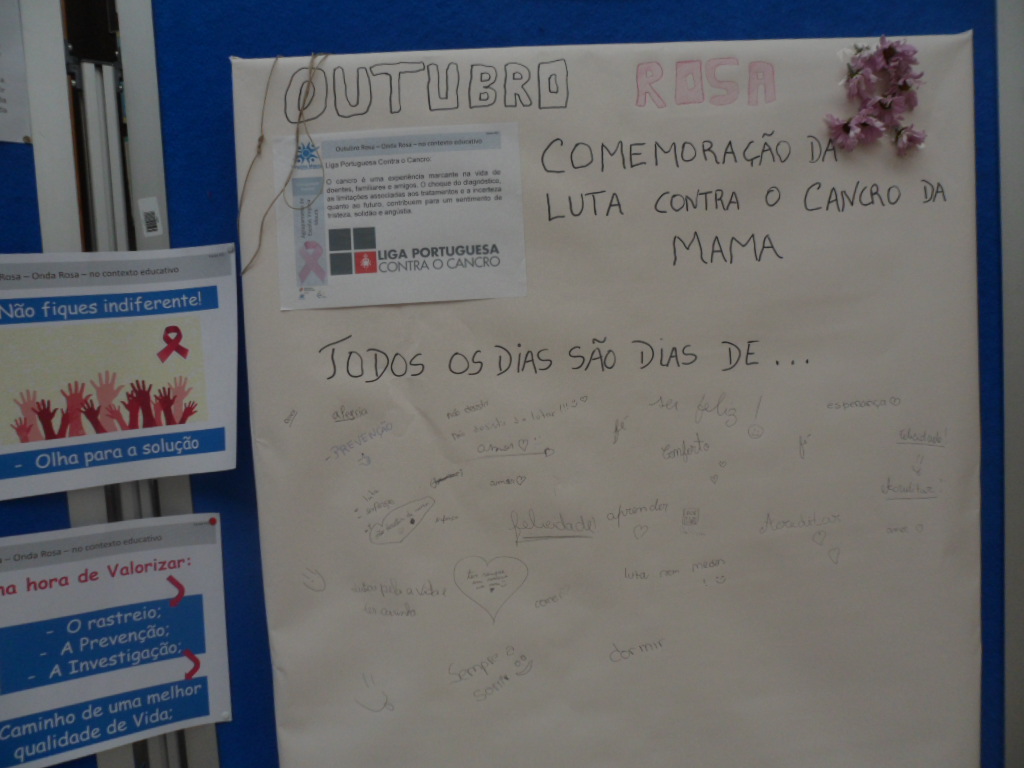 OUTUBRO ROSA
COMEMORAÇÃO DA
LUTA CONTRA O CANCRO DA
MAMA
Outubro Rosa – Onda Rosa – no contexto educativo
Liga Portuguesa Contra o Cancro:
O cancro é uma experiência marcante na vida de
doentes, familiares e amigos. O choque do diagnóstico,
as limitações associadas aos tratamentos e a incerteza
quanto ao futuro, contribuem para um sentimento de
tristeza, solidão e angústia.
LIGA PORTUGUESA
CONTRA O CANCRO
TODOS OS DiAS SÃO DIAS DE...
alegria
- PREVENÇÃO
amor
fé
ser feliz!
conforto
fé
esperança
amor
felicidade!
aprender
Acreditar
amor
lutar sem medos
Sempre a
sorrir
dormir
Rosa – Onda Rosa – no contexto educativo
Não fiques indiferente!
- Olha para a solução
a – Onda Rosa – no contexto educativo
na hora de Valorizar:
- O rastreio;
- A Prevenção;
- A Investigação;
Caminho de uma melhor
qualidade de Vida;